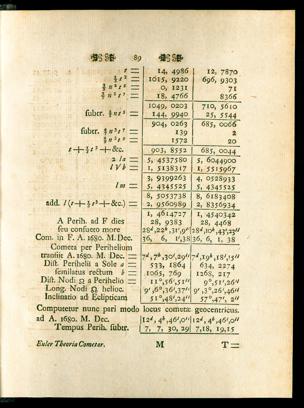 89
r = 14, 4986 | 12, 7870
= 1015, 9220 | 696, 9303
= 0, 1231 | 71
= 18, 4766 | 8366
1049, 0203 | 710, 5610
subtr. = 144, 9940 | 25, 5544
904, 0263 | 685, 0066
subtr. = 139 | 2
= 1572 | 20
&c. = 903, 8552 | 685, 0044
= 5, 4537580 | 5, 6044900
= 1, 5138317 | 1, 5515967
3, 9399263 | 4, 0528933
l m = 5, 4345525 | 5, 4345525
8, 5053738 | 8, 6183408
add. = 2, 9560989 | 2, 8356934
1, 4614727 | 1, 4540342
A Perih. ad F dies 28, 9383 | 28, 4468
seu confueto more
Com. in F A. 1680. M. Dec. 36, 6, 1',38 | 36, 6, 1, 38
Cometa per Perihelium
transiit A. 1680. M. Dec.
Dist. Perihelii a Sole a = 533, 1864 | 634, 2274
semilatus rectum b = 1065, 769 | 1268, 217
Dist. Nodi ☊ a Perihelio = 11°,56',51" | 9°,51',26"
Long. Nodi ☊ helioc.
Inclinatio ad Eclipticam 51°,48',24" | 57°,47', 2"
Computetur nunc pari modo locus cometæ geocentricus.
ad A. 1680. M. Dec. 12d, 4h,46',0" | 12d, 4h,46',0"
Tempus Perih. subtr. 7, 7, 30, 29 | 7,18, 19,15
Euler Theoria Cometar. M T=